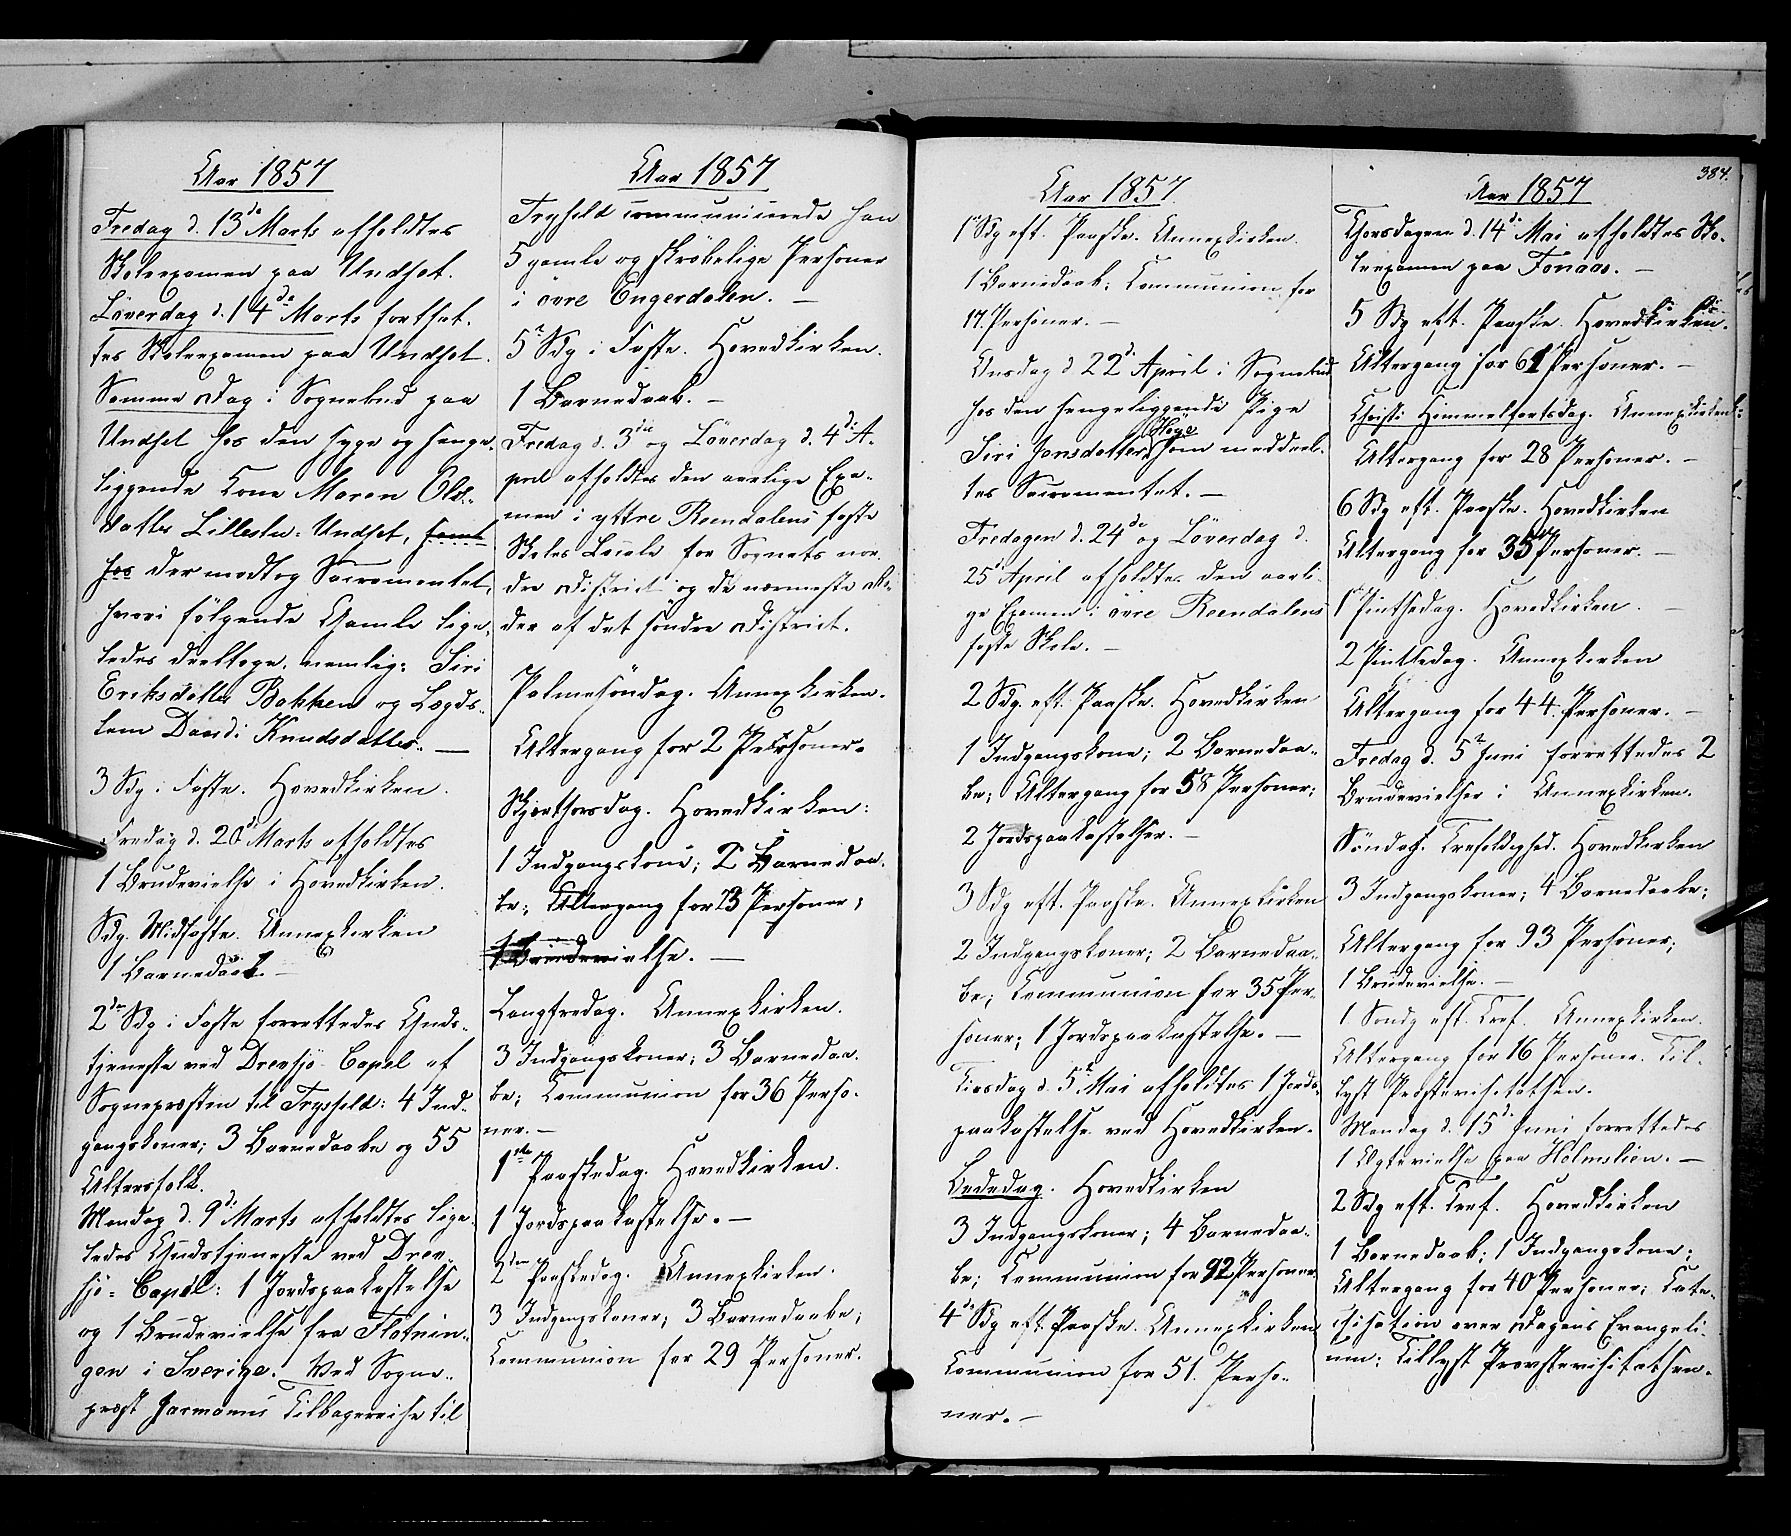 Aar 1857
Fredag d. 13de Marts afholdtes
Skoleexamen paa Undset.
Löverdag d. 14de Marts fortsat-
tes Skoleexamen paa Undset.
Samme Dag i Sognebud paa
Undset hos den syge og senge-
liggende Kone Maren Ols-
datter Lillestu-Undset, samt
hos der modtog Sacramentet,
hvori følgende Gamle lige-
ledes deeltoge, nemlig: Siri
Eriksdatter Bakken og Lægds-
lem Dardi Knudsdatter. —
3 Sdg i Faste. Hovedkirken.
Fredag d. 20de Marts afholdtes
1 Brudevielse i Hovedkirken.
Sdg. Midfaste. Annexkirken
1 Barnedaab. —
2den Sdg i Faste forrettedes Guds-
tjeneste ved Drevsjö-Capel af
Sognepræsten til Trysild: 4 Ind-
gangskoner; 3 Barnedaabe og 55
Altersfolk.
Mandag d. 9de Marts afholdtes lige-
ledes Gudstjeneste ved Drev-
sjö-Capel: 1 Jordspaakastelse
og 1 Brudevielse fra Flötnin-
gen i Sverige. Ved Sogne-
præst Jarmanns Tilbagereise til
Aar 1857
Trysild communicerede han
5 gamle og skröbelige Personer
i övre Engerdalen. —
5te Sdg i Faste. Hovedkirken.
1 Barnedaab. —
Fredag d. 3die og Löverdag d. 4de A-
pril afholdtes den aarlige Exa-
men i yttre Rendalens faste
Skoles Locale for Sognets nor-
dre District og de nærmeste
der af det söndre District.
Palmesöndag. Annexkirken.
Altergang for 2 Personer.
Skjærthorsdag. Hovedkirken:
1 Indgangskone; 2 Barnedaa-
be; Altergang for 23 Personer;
1 Brudevielse. —
Langfredag. Annexkirken.
3 Indgangskoner; 3 Barnedaa-
be; Communion for 36 Perso-
ner. —
1ste Paaskedag. Hovedkirken.
1 Jordspaakastelse. —
2den Paaskedag. Annexkirken.
3 Indgangskoner; 3 Barnedaabe;
Communion for 29 Personer.
Aar 1857.
1ste Sdg eft. Paaske. Annexkirken.
1 Barnedaab; Communion for
17. Personer. —
Onsdag d 22de April i Sognebud
hos den sengeliggende Pige
Siri Jonsdatter Höye som meddeel-
tes Sacramentet. —
Fredagen d. 24de og Löverdag d.
25de April afholdtes den aarli-
ge Examen i övre Rendalens
faste Skole. —
2 Sdg. eft. Paaske. Hovedkirken
1 Indgangskone; 2 Barnedaa-
be; Altergang for 58 Personer;
2 Jordspaakastelser. —
3 Sdg eft. Paaske. Annexkirken
2 Indgangskoner; 2 Barnedaa-
be; Communion for 35 Per-
soner; 1 Jordspaakastelse. —
Tirsdag d. 5te Mai afholdtes 1 Jords-
paakastelse ved Hovedkirken.
Bededag. Hovedkirken
3 Indgangskoner; 4 Barnedaa-
be; Communion for 92 Personer
4de Sdg eft. Paaske. Annexkirken
Communion for 51. Perso-
ner. —
384.
Aar 1857
Thorsdagen d. 14de Mai afholdtes Sko-
leexamen paa Fonaas. —
5 Sdg eft. Paaske. Hovedkirken.
Altergang for 61 Personer. —
Christi Himmelfartsdag. Annexkirken:
Altergang for 28 Personer. —
6 Sdg eft. Paaske. Hovedkirken
Altergang for 35 Personer. —
1ste Pintsedag. Hovedkirken. —
2 Pintsedag. Annexkirken
Altergang for 44. Personer. —
Fredag d. 5te Juni forrettedes 2
Brudevielser i Annexkirken.
Söndag Trefoldighed. Hovedkirken
3 Indgangskoner; 4 Barnedaabe;
Altergang for 93 Personer;
1 Brudevielse. —
1. Sondg eft. Tref. Annexkirken.
Altergang for 16 Personer. Til-
lyst Provstevisitatsen.
Mandag d. 15de Juni forrettedes
1 Ægtevielse paa Holmslien. —
2 Sdg eft. Tref. Hovedkirken
1 Barnedaab; 1 Indgangskone;
Altergang for 40 Personer; Cate-
chisation over Dagens Evangeli-
um; Tillyst Provstevisitatsen.